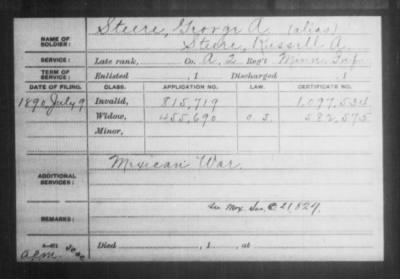 NAME OF SOLDIER: Steere, George A. (alias)
Steere, Russell A.
SERVICE: Late rank, Co. A, 2 Reg't Minn. Inf.
TERM OF SERVICE: Enlisted , 1 Discharged , 1
DATE OF FILING. CLASS. APPLICATION NO. LAW. CERTIFICATE NO.
1890, July 9 Invalid, 815,719 1,097,534
Widow, 455,690 O. S. 582,575
Minor,
ADDITIONAL SERVICES: Mexican War.
See Mex Sur. C 21,824.
REMARKS:
Died , 1 , at